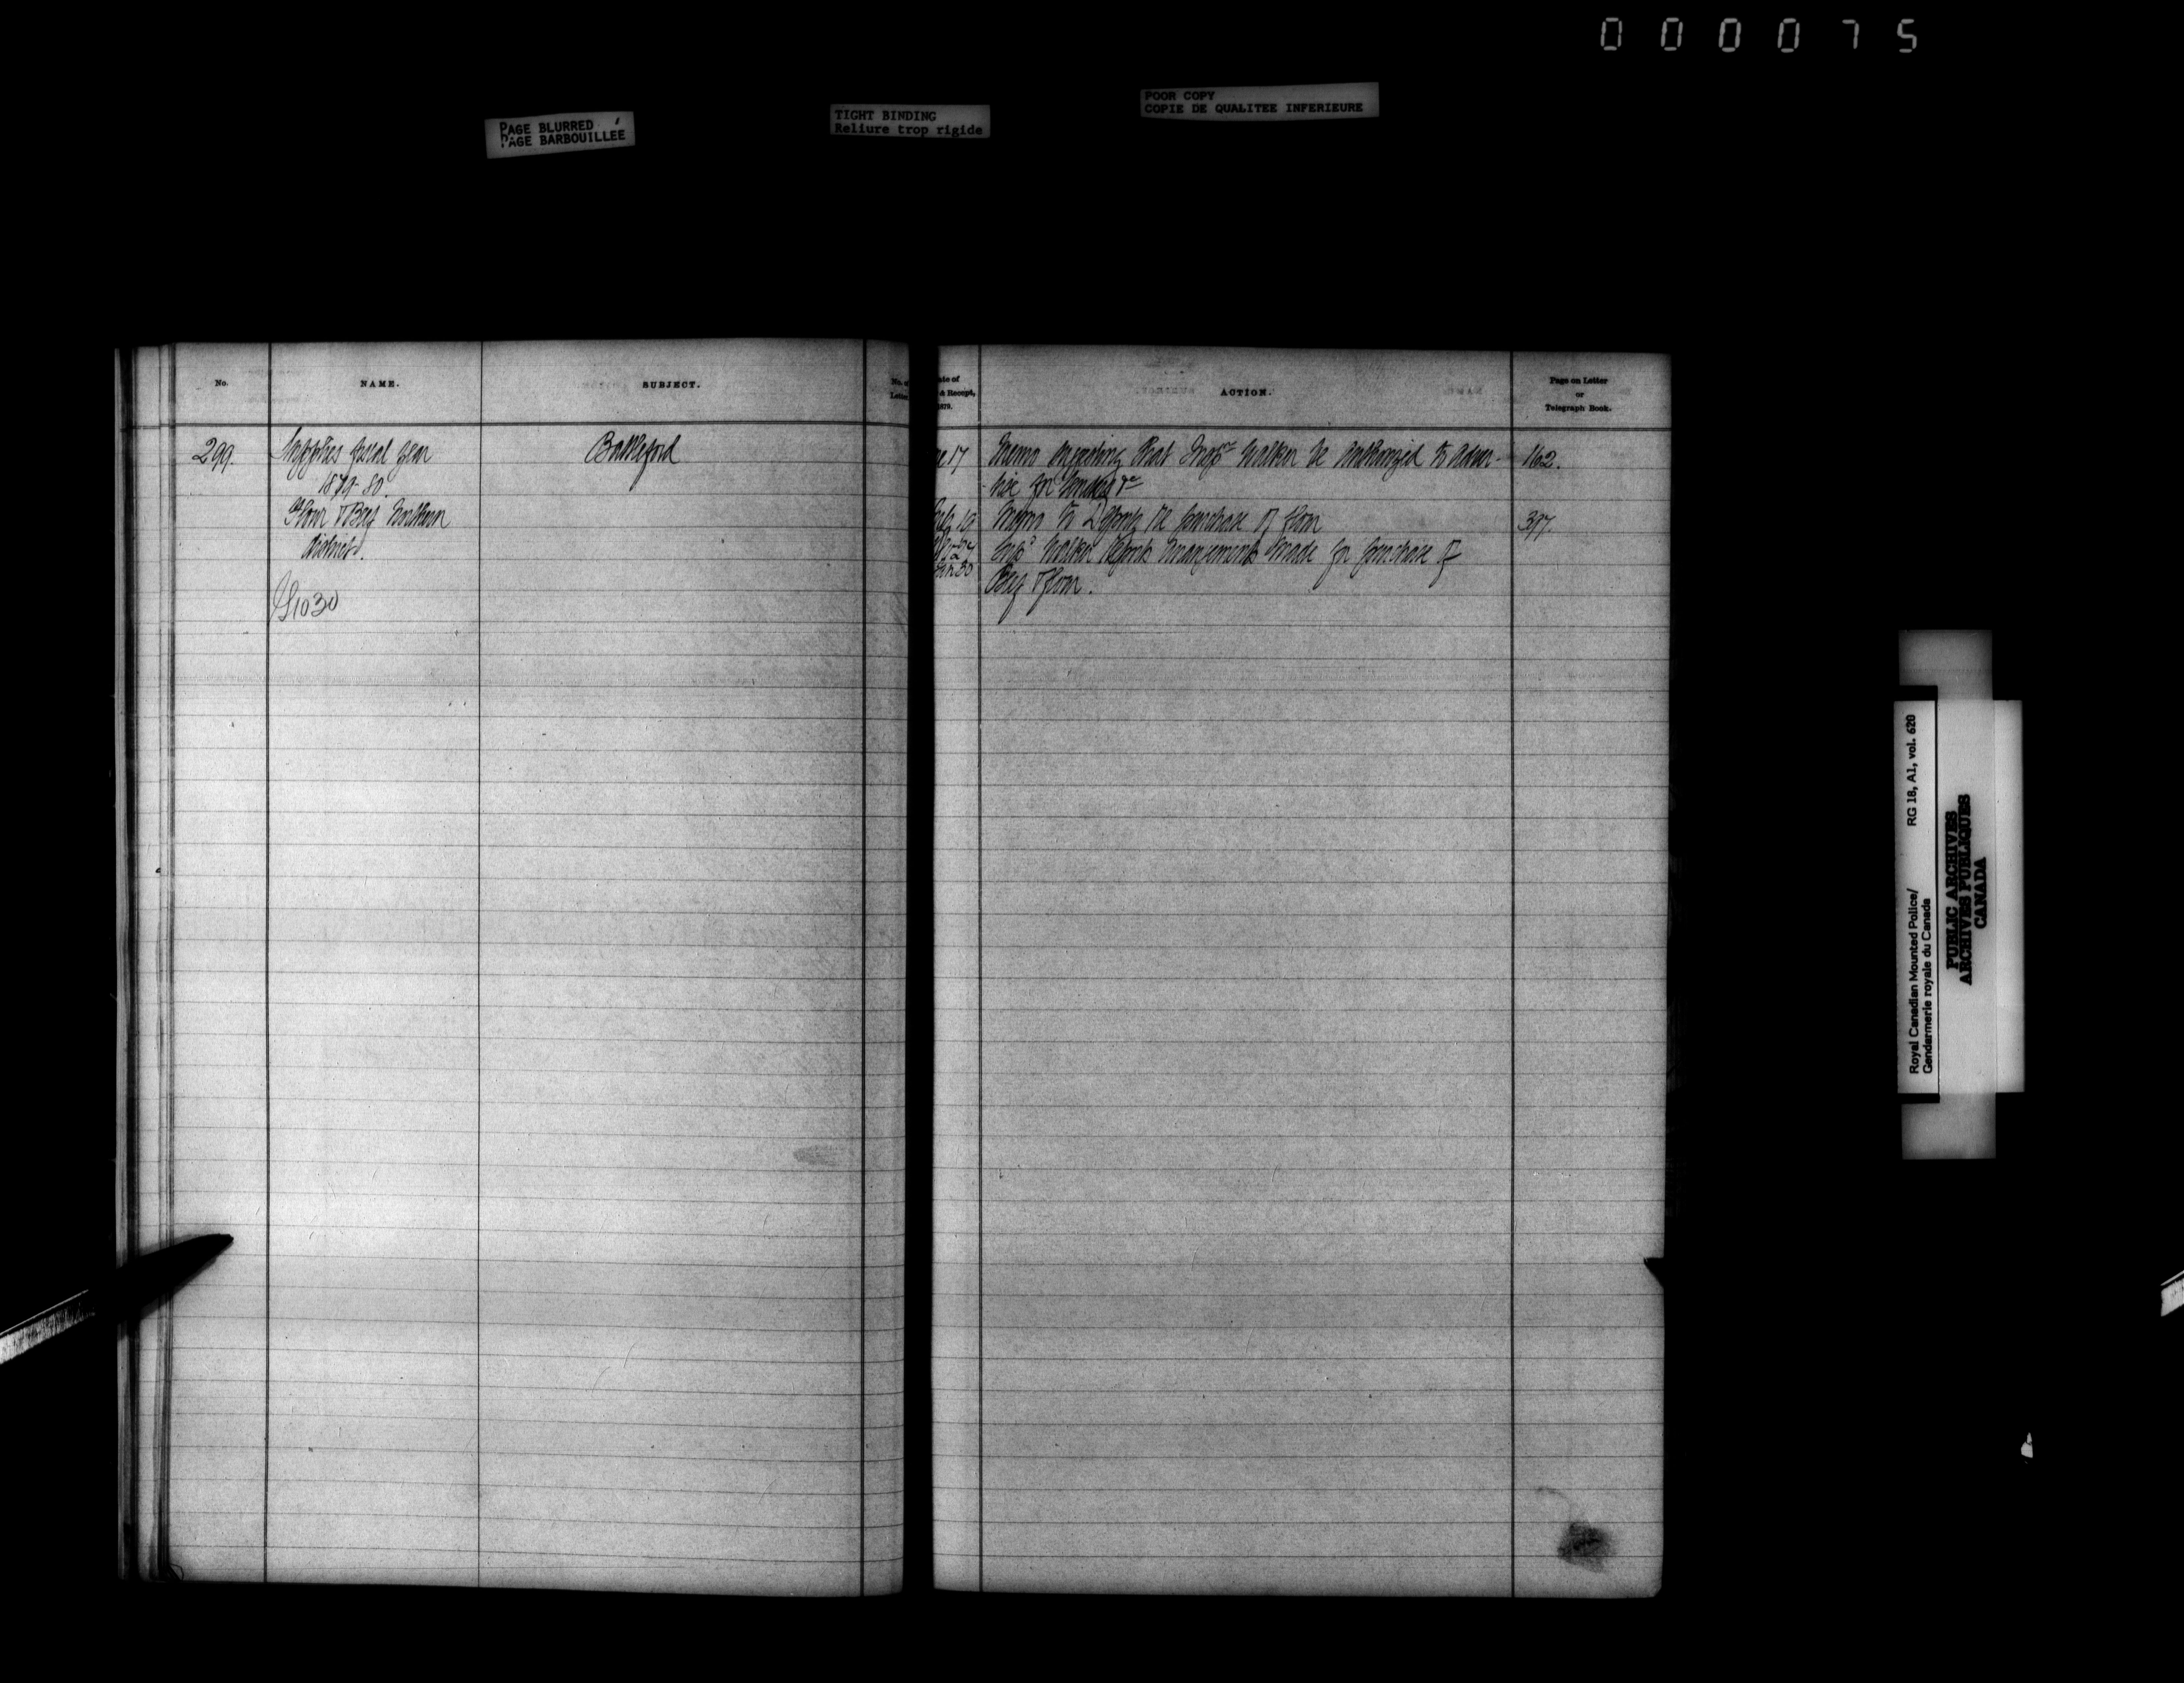 000075
PAGE BLURRED
PAGE BARBOUILLÉE
TIGHT BINDING
Reliure trop rigide
POOR COPY
COPIE DE QUALITEE INFERIEURE
No.
NAME.
SUBJECT.
No. of
Letter
ate of
& Receipt,
1879.
ACTION.
Page on Letter
or
Telegraph Book.
299.
Supplies fiscal year
1879-80.
Flour & Beef Northern
District.
1030
Battleford
17
Memo suggesting that Inspr Walker be authorized to adver-
tise for tenders &c
162.
19
Memo to purchase of flour
397.
24
Walker reports arrangements made for purchase of
30
Beef & flour.
Royal Canadian Mounted Police/
Gendarmerie royale du Canada
RG 18, A1, vol. 620
PUBLIC ARCHIVES
ARCHIVES PUBLIQUES
CANADA